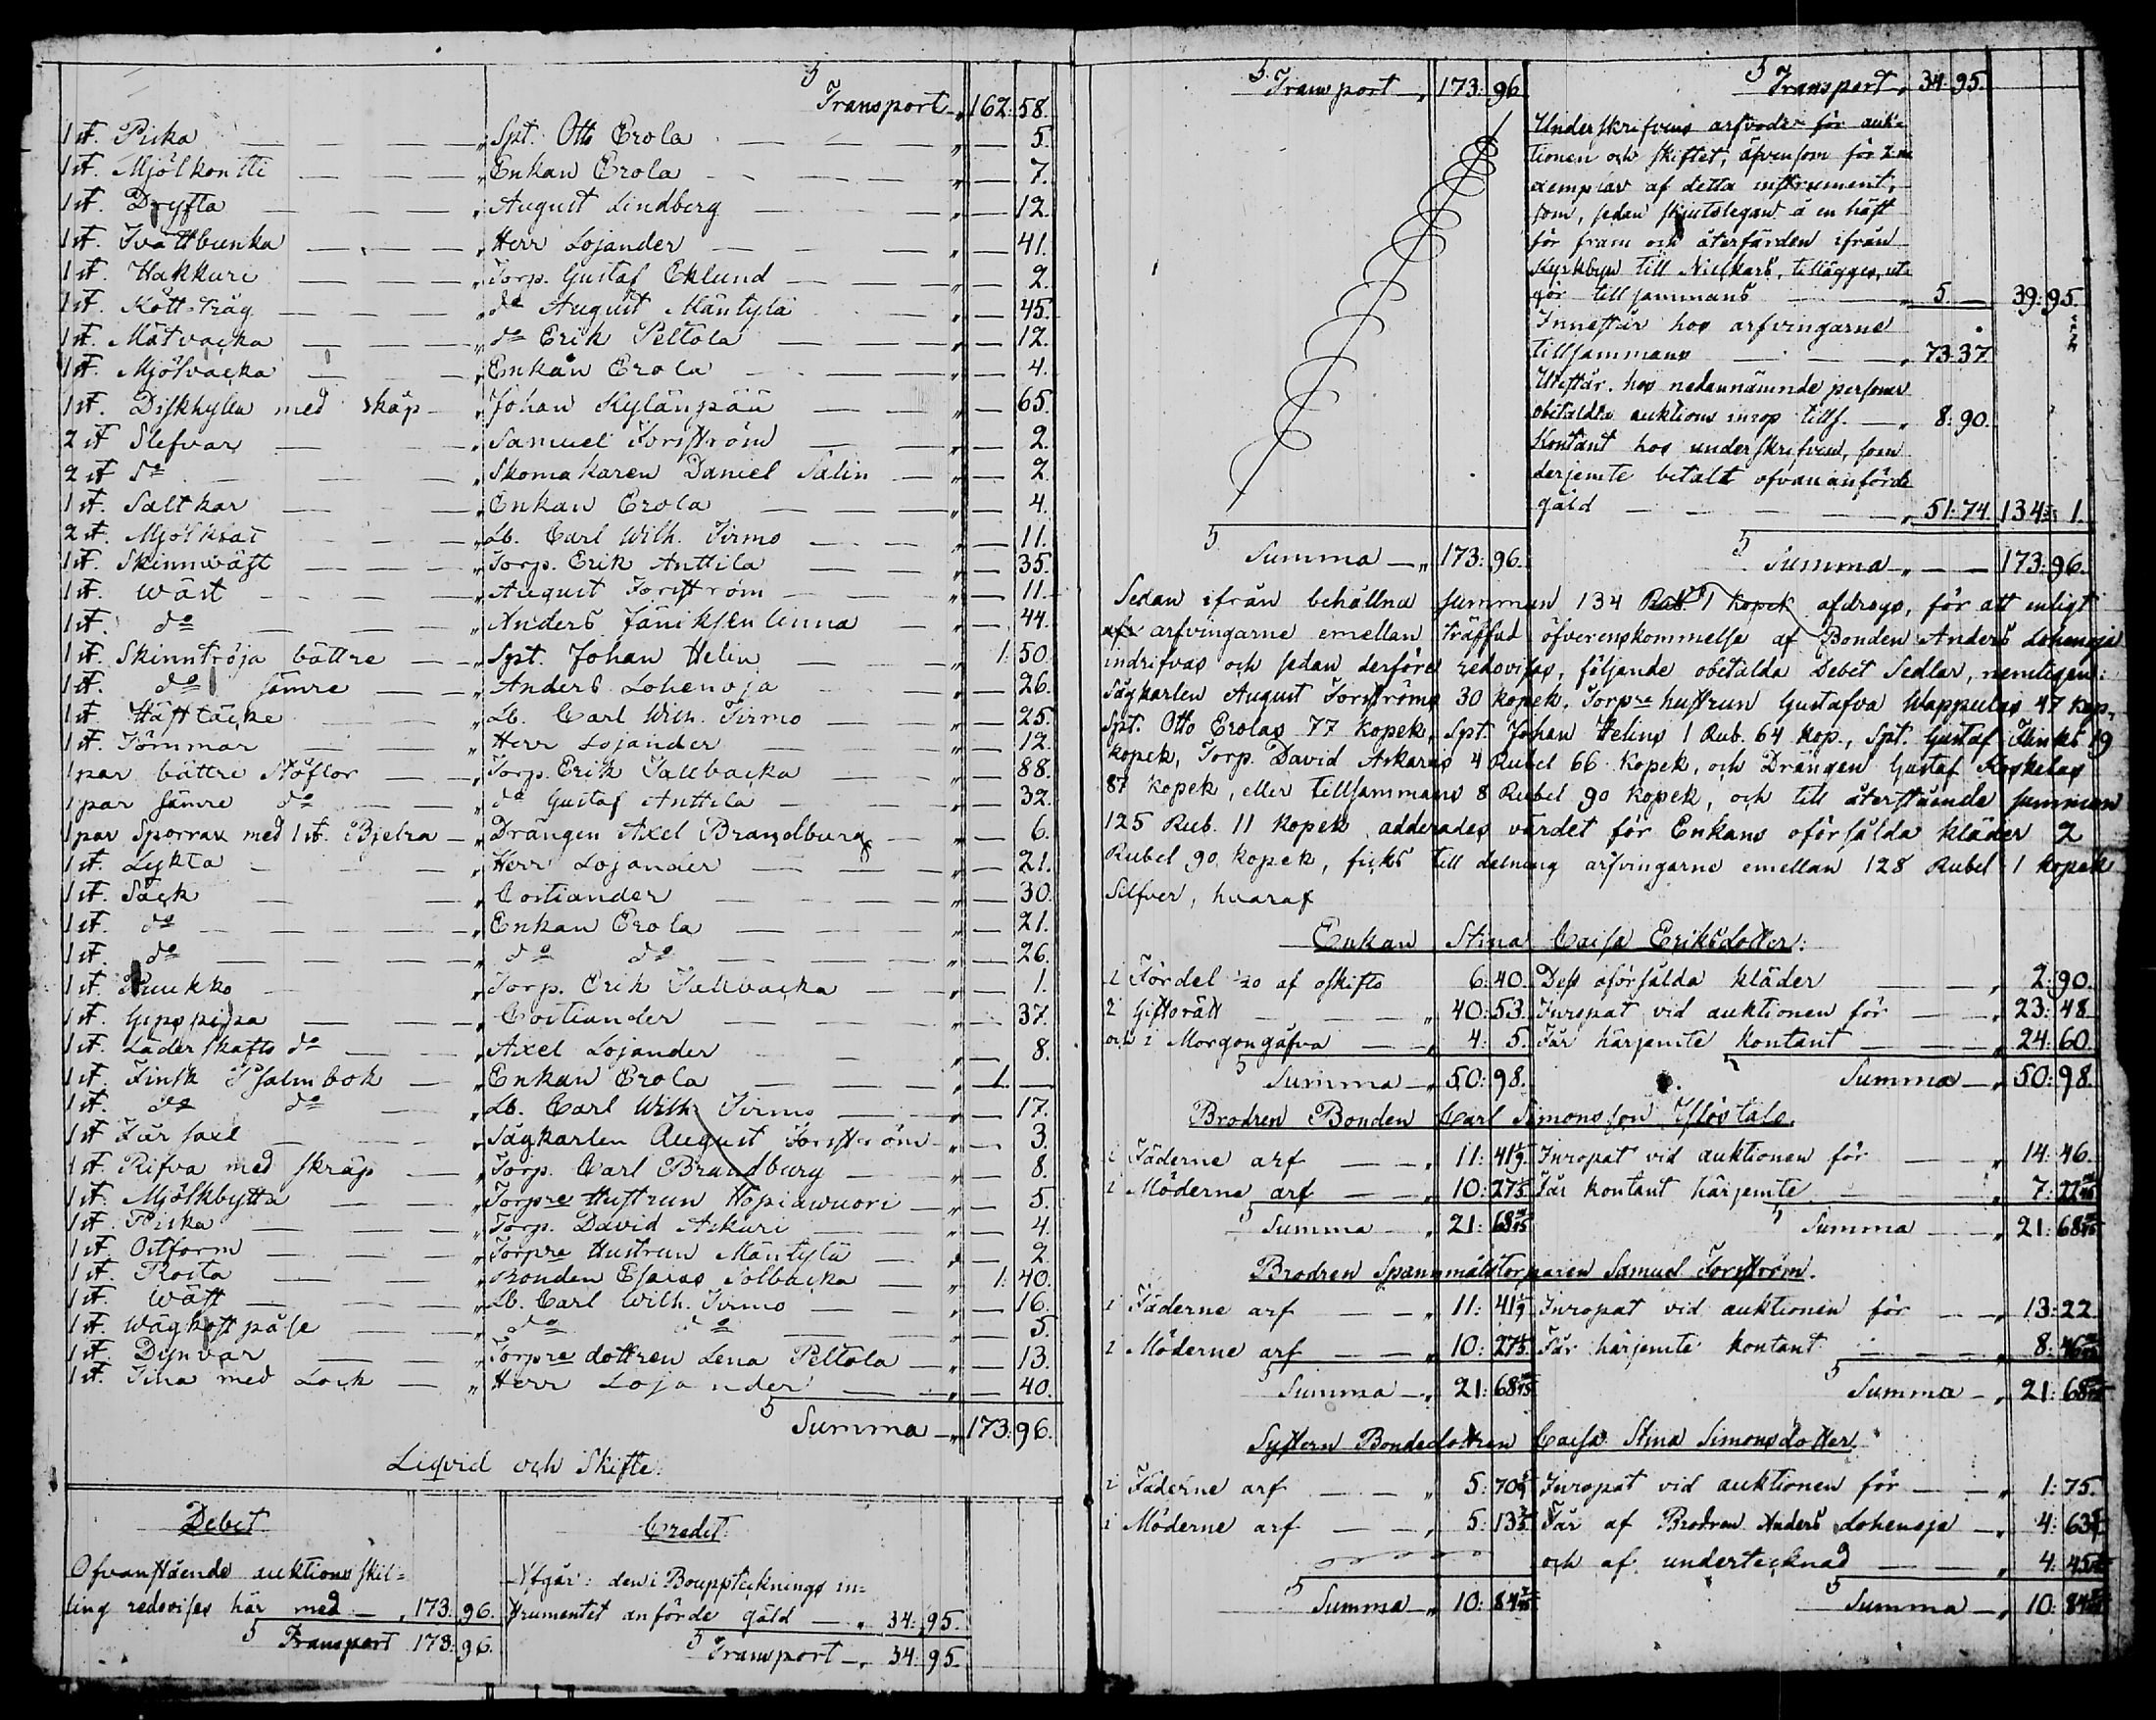 Transport „ 162: 58.
1 st. Piska — „ Spt. Otto Erola — „ — 5.
1 st. Mjölkontti — „ Enkan Erola — „ — 7.
1 st. Dryfta — „ August Lindberg — „ — 12.
1 st. Tvättbunka — „ Herr Lojander — „ — 41.
1 st. Hakkuri — „ Torp. Gustaf Eklund — „ — 2.
1 st. Kött tråg — „ do August Mäntylä — „ — 45.
1 st. Mätvacka — „ do Erik Peltola — „ — 12.
1 st. Mjölvacka — „ Enkan Erola — „ — 4.
1 st. Diskhylla med skåp — „ Johan Kylänpää — „ — 65.
2 st Slefvar — „ Samuel Forsström — „ — 2.
2 st do — „ Skomakaren Daniel Salin — „ — 2.
1 st. Saltkar — „ Enkan Erola — „ — 4.
2 st. Mjölkfat — „ Lb. Carl Wilh. Tirmo — „ — 11.
1 st. Skinnwäst — „ Torp. Erik Anttila — „ — 35.
1 st. Wäst — „ August Forsström — „ — 11.
1 st. do — „ Anders Jäniksenlinna — „ — 44.
1 st. Skinntröja bättre — „ Spt. Johan Helin — „ 1: 50.
1 st. do sämre — „ Anders Lohenoja — „ — 26.
1 st. Hästtäcke — „ Lb. Carl Wilh. Tirmo — „ — 25.
1 st. Tömmar — „ Herr Lojander — „ — 12.
1 par bättre Stöflor — „ Torp. Erik Tallbacka — „ — 88.
1 par sämre do — „ do Gustaf Anttila — „ — 32.
1 par Sporrar med 1 st. Bjelra — „ Drängen Axel Brandburg — „ — 6.
1 st. Lykta — „ Herr Lojander — „ — 21.
1 st. Säck — „ Costiander — „ — 30.
1 st. do — „ Enkan Erola — „ — 21.
1 st. do — „ do do — „ — 26.
1 st. Puukko — „ Torp. Erik Tallbacka — „ — 1.
1 st. Gipspipa — „ Costiander — „ — 37.
1 st. Läderskafts do — „ Axel Lojander — „ — 8.
1 st. Finsk Psalmbok — „ Enkan Erola — „ 1. —
1 st. do do — „ Lb. Carl Wilh. Tirmo — „ — 17.
1 st Fårsaxl — „ Sågkarlen August Forsström — „ — 3.
1 st. Rifva med skräp — „ Torp. Carl Brandburg — „ — 8.
1 st. Mjölkbytta — „ Torpre Hustrun Hopiawuori — „ — 5.
1 st. Piska — „ Torp. David Askari — „ — 4.
1 st. Ostform — „ Torpre Hustrun Mäntylä — „ — 2.
1 st. Rosta — „ Bonden Esaias Solbacka — „ 1: 40.
1 st. Wäst — „ Lb. Carl Wilh. Tirmo — „ — 16.
1 st. Wägkostpåse — „ do do — „ — 5.
1 st. Dynvar — „ Torpre dottren Lena Peltola — „ — 13.
1 st. Tina med Lock — „ Herr Lojander — „ — 40.
Summa — „ 173: 96.
Liqvid och Skifte.
Debet
Ofvanstående auktions skil=
ling redovises här med — „ 173: 96.
Transport 173: 96.
Credit.
Afgår: den i Bouppteckningsin=
strumentet anförde gäld — „ 34: 95.
Transport — „ 34: 95.
Transport — „ 173: 96.
Summa — „ 173: 96.
Transport „ 34: 95.
Underskrifvens arfvode för auk=
tionen och skiftet, äfvensom för 2 ne
exemplar af detta instrument,
som, sedan skjutslegan å en häst
för fram och återfärden ifrån
Kyrkbyn till Niuhars, tillägges, ut=
gör tillsammans — „ 5. — 39: 95.
Innestår hos arfvingarne
tillsammans — „ 73: 37
Utestår hos nedannämnde personer
obetaldta auktions inrop tills. — „ 8: 90.
Kontant hos underskrifven, som
derjemte betalt ofvananförde
gäld — „ 51: 74. 134: 1.
Summa — „ — 173: 96.
Sedan ifrån behållna summan 134 Rub. 1 kopek afdrogs, för att enligt
arfvingarne emellan träffad öfverenskommelse af Bonden Anders Lohenoja
indrifvas och sedan derföre redovisas, följande obetalda Debet Sedlar, nemligen:
Sågkarlen August Forsströms 30 kopek, Torpre hustrun Gustafva Wappulas 47 kop.,
Spt. Otto Erolas 77 kopek, Spt. Johan Helins 1 Rub. 64 kop., Spt. Gustaf Flinks 19
kopek, Torp. David Askaris 4 Rubel 66 kopek, och Drängen Gustaf Koskelas
87 kopek, eller tillsammans 8 Rubel 90 kopek, och till återstående summan
125 Rub. 11 kopek adderades värdet för Enkans oförsålda kläder 2
Rubel 90 kopek, ficks till delning arfvingarne emellan 128 Rubel 1 kopek
Silfver, hvaraf
Enkan Stina Caisa Eriksdotter:
i Fördel 1/20 af oskifto 6: 40. Dess oförsålda kläder — „ 2: 90.
i Giftorätt — „ 40: 53. Inropat vid auktionen för — „ 23: 48.
och i Morgongåfva — „ 4: 5. Får härjemte kontant — „ 24: 60.
Summa — „ 50: 98. Summa — „ 50: 98.
Brodren Bonden Carl Simonsson Isotalo.
i Fäderne arf — „ 11: 41 Inropat vid auktionen för — „ 14: 46.
i Möderne arf — „ 10: 27 Får kontant härjemte — „ 7: 22
Summa — „ 21: 68 Summa — „ 21: 68
Brodren Spannmålstorparen Samuel Forsström.
i Fäderne arf — „ 11: 41 Inropat vid auktionen för — „ 13: 22
i Möderne arf — „ 10: 27 Får härjemte kontant — „ 8: 46
Summa — „ 21: 68 Summa — „ 21: 68
Systern Bondedottren Caisa Stina Simonsdotter.
i Fäderne arf — „ 5: 70 Inropat vid auktionen för — „ 1: 75.
i Möderne arf — „ 5: 13 Får af Brodren Anders Lohenoja — „ 4: 63
och af undertecknad — „ 4: 45
Summa — „ 10: 84 Summa — „ 10: 84